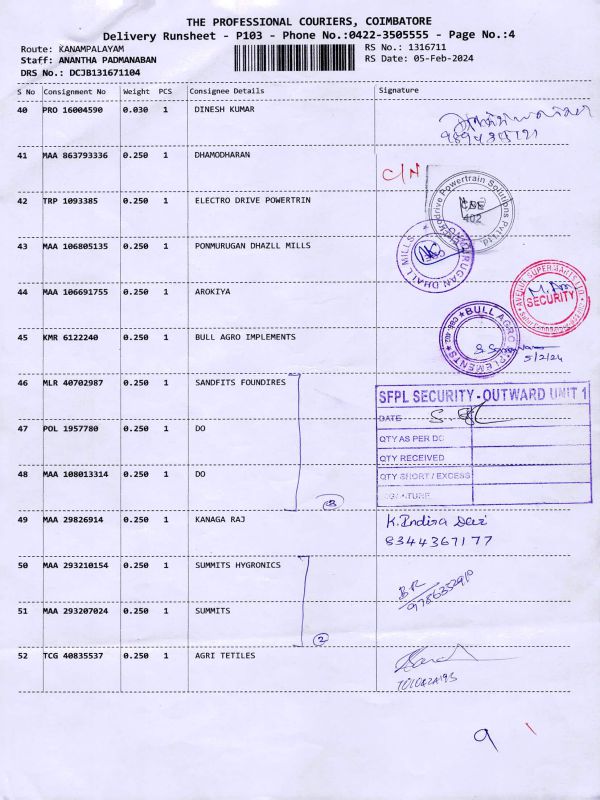 THE PROFESSIONAL COURIERS, COIMBATORE
Delivery Runsheet - P103 - Phone No.:0422-3505555 - Page No.:4
Route: KANAMPALAYAM
RS No.: 1316711
Staff: ANANTHA PADMANABAN
RS Date: 05-Feb-2024
DRS No.: DCJB131671104
S No Consignment No Weight PCS Consignee Details Signature
40 PRO 16004590 0.030 1 DINESH KUMAR
41 MAA 863793336 0.250 1 DHAMODHARAN
C/N
42 TRP 1093385 0.250 1 ELECTRO DRIVE POWERTRIN
CBE
402
43 MAA 106805135 0.250 1 PONMURUGAN DHAZLL MILLS
44 MAA 106691755 0.250 1 AROKIYA
SECURITY
45 KMR 6122240 0.250 1 BULL AGRO IMPLEMENTS
5/2/24
46 MLR 40702987 0.250 1 SANDFITS FOUNDIRES
SFPL SECURITY-OUTWARD UNIT 1
DATE
47 POL 1957780 0.250 1 DO
QTY AS PER DC
QTY RECEIVED
48 MAA 108013314 0.250 1 DO
QTY SHORT / EXCESS
SIGNATURE
3
49 MAA 29826914 0.250 1 KANAGA RAJ
K. Indira Devi
8344367177
50 MAA 293210154 0.250 1 SUMMITS HYGRONICS
B.R
9786352910
51 MAA 293207024 0.250 1 SUMMITS
2
52 TCG 40835537 0.250 1 AGRI TETILES
9